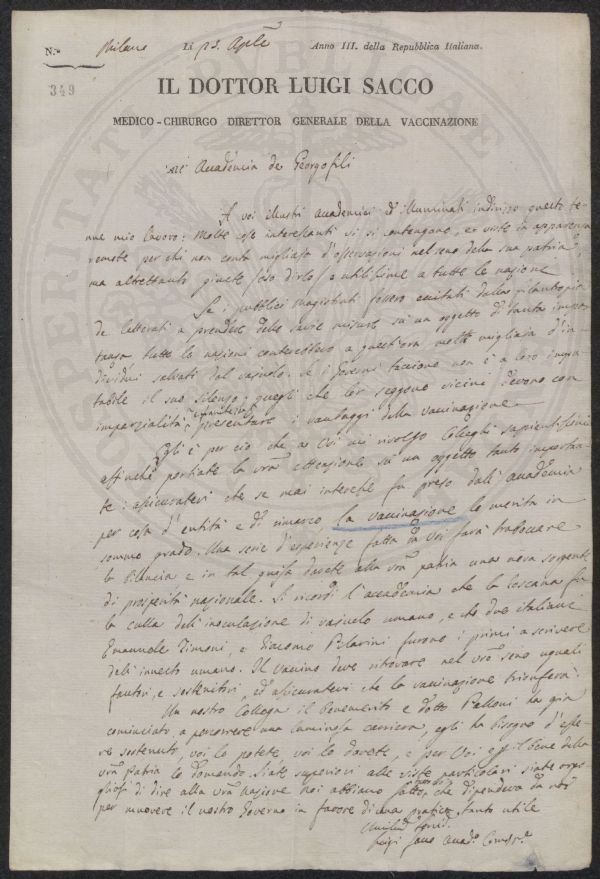 N.º Milano Li 23. Aple Anno III. della Repubblica Italiana.
349
IL DOTTOR LUIGI SACCO
MEDICO-CHIRURGO DIRETTOR GENERALE DELLA VACCINAZIONE
All' Accademia de Georgofili
A voi illustri accademici ed illuminati indirizzo questo te-
nue mio lavoro: molte cose interessanti vi si contengono, e viste in apparenza
remote per chi non conta migliaja d'osservazioni nel seno della sua patria,
ma altrettanto giuste (oso dirlo) e utilissime a tutte le nazione
Se i pubblici magistrati fossero eccitati dalla filantropia
de letterati a prendere delle savie misure su un oggetto di tanta impor-
tanza tutte le nazioni conterebbero a quest'ora molte migliaja d'in-
dividui salvati dal vajuolo. Se i Governi tacciono non è a loro impu-
tabile il suo silenzo; quegli che lor seggono vicini devono con
imparzialità presentare i vantaggi della vaccinazione
Egli è per ciò che a Voi mi rivolgo Colleghi sapientissimi
affinchè portiate la vra attenzione su un oggetto tanto importan-
te: assicuratevi che se mai interesse fu preso dall'accademia
per cosa d'entità e di rimarco, la vaccinazione lo merita in
sommo grado. Una serie d'esperienze fatta da Voi farà traboccare
la bilancia e in tal guisa darete alla vra patria una nova sorgente
di prosperità nazionale. Si ricordi l'accademia che la Toscana fu
la culla dell'inoculazione di vajuolo umano, e che due italiani
Emanuele Timoni, e Giacomo Pilarini furono i primi a scrivere
dell'innesto umano. Il vaccino deve ritrovare nel vro seno uguali
fautori, e sostenitori, ed assicuratevi che la vaccinazione trionferà.
Un nostro Collega il Benemerito e Dotto Palloni ha già
cominciato a percorrere una luminosa carriera, egli ha bisogno d'esse-
re sostenuto, voi lo potete, voi lo dovete, e per Voi e pel bene della
vra Patria lo domando. Siate superiori alle viste particolari siate orgo-
gliosi di dire alla vra nazione noi abbiamo fatto quanto che dipendeva da noi
per muovere il nostro Governo in favore di una pratica tanto utile
Luigi Sacco